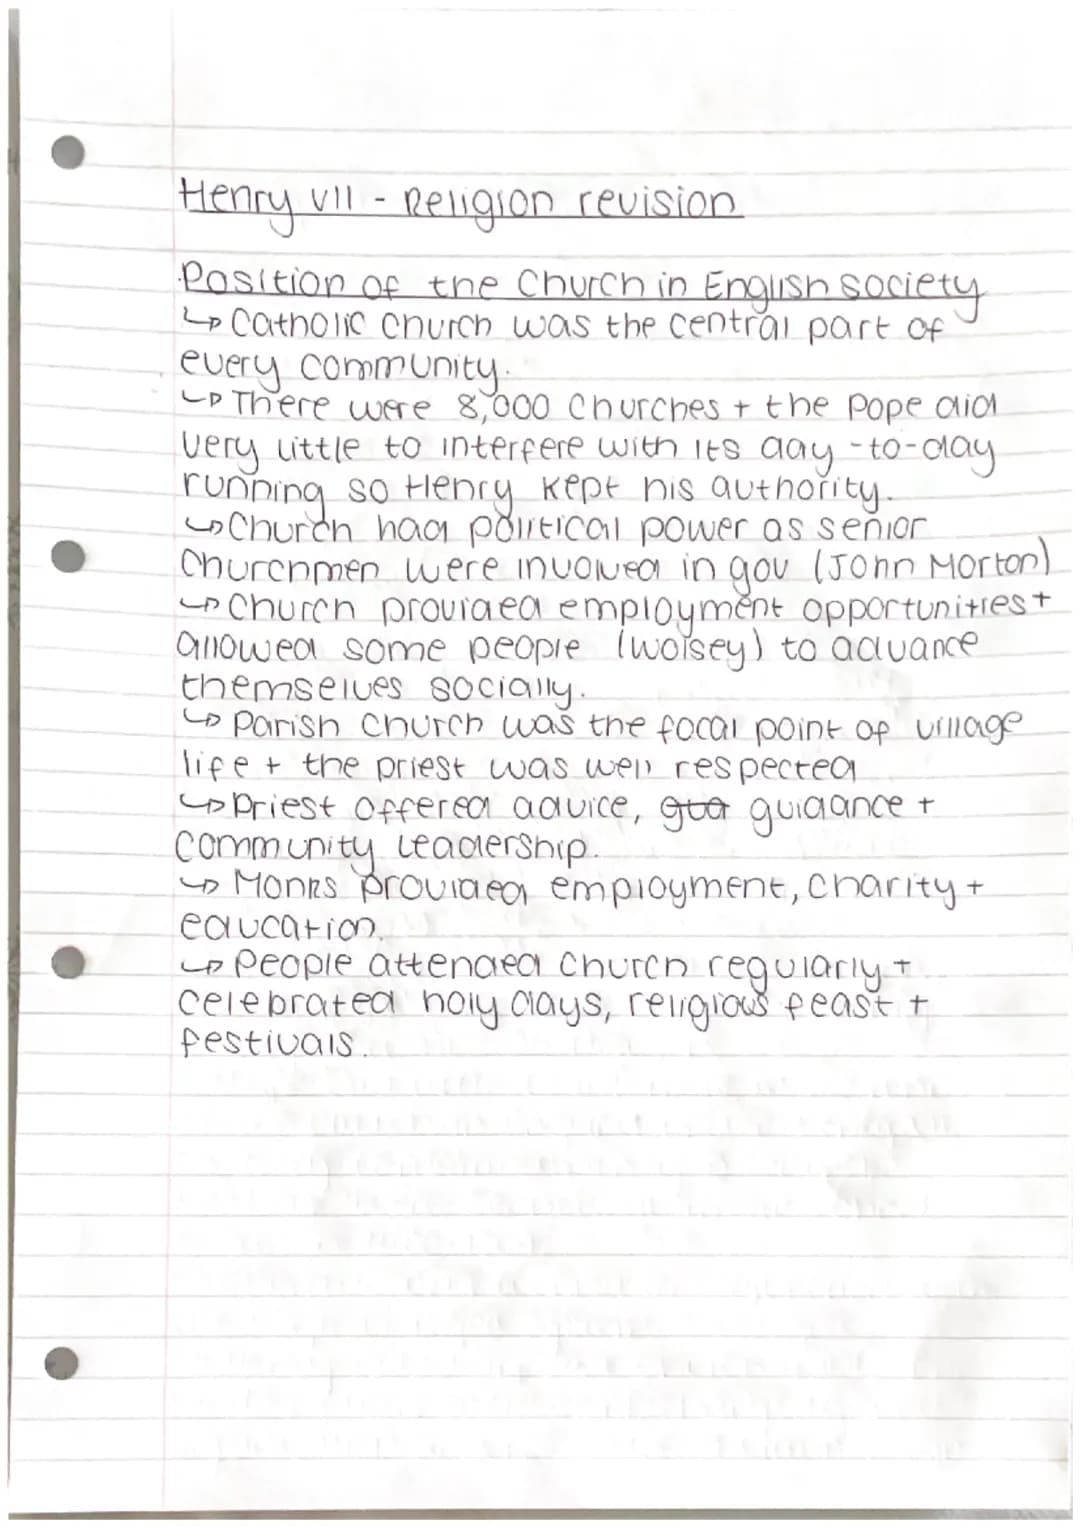 Henry VII - Religion revision
Position of the Church in English society
↳ Catholic Church was the central part of
every community.
↳ There were 8,000 Churches + the Pope did
very little to interfere with its day-to-day
running so Henry kept his authority.
↳ Church had political power as senior
Churchmen were involved in gov (John Morton)
↳ Church provided employment opportunities +
allowed some people (Wolsey) to advance
themselves socially.
↳ Parish Church was the focal point of village
life + the priest was well respected
↳ Priest offered advice, guidance +
community leadership.
↳ Monks provided employment, charity +
education.
↳ People attended Church regularly +
celebrated holy days, religious feast +
festivals.